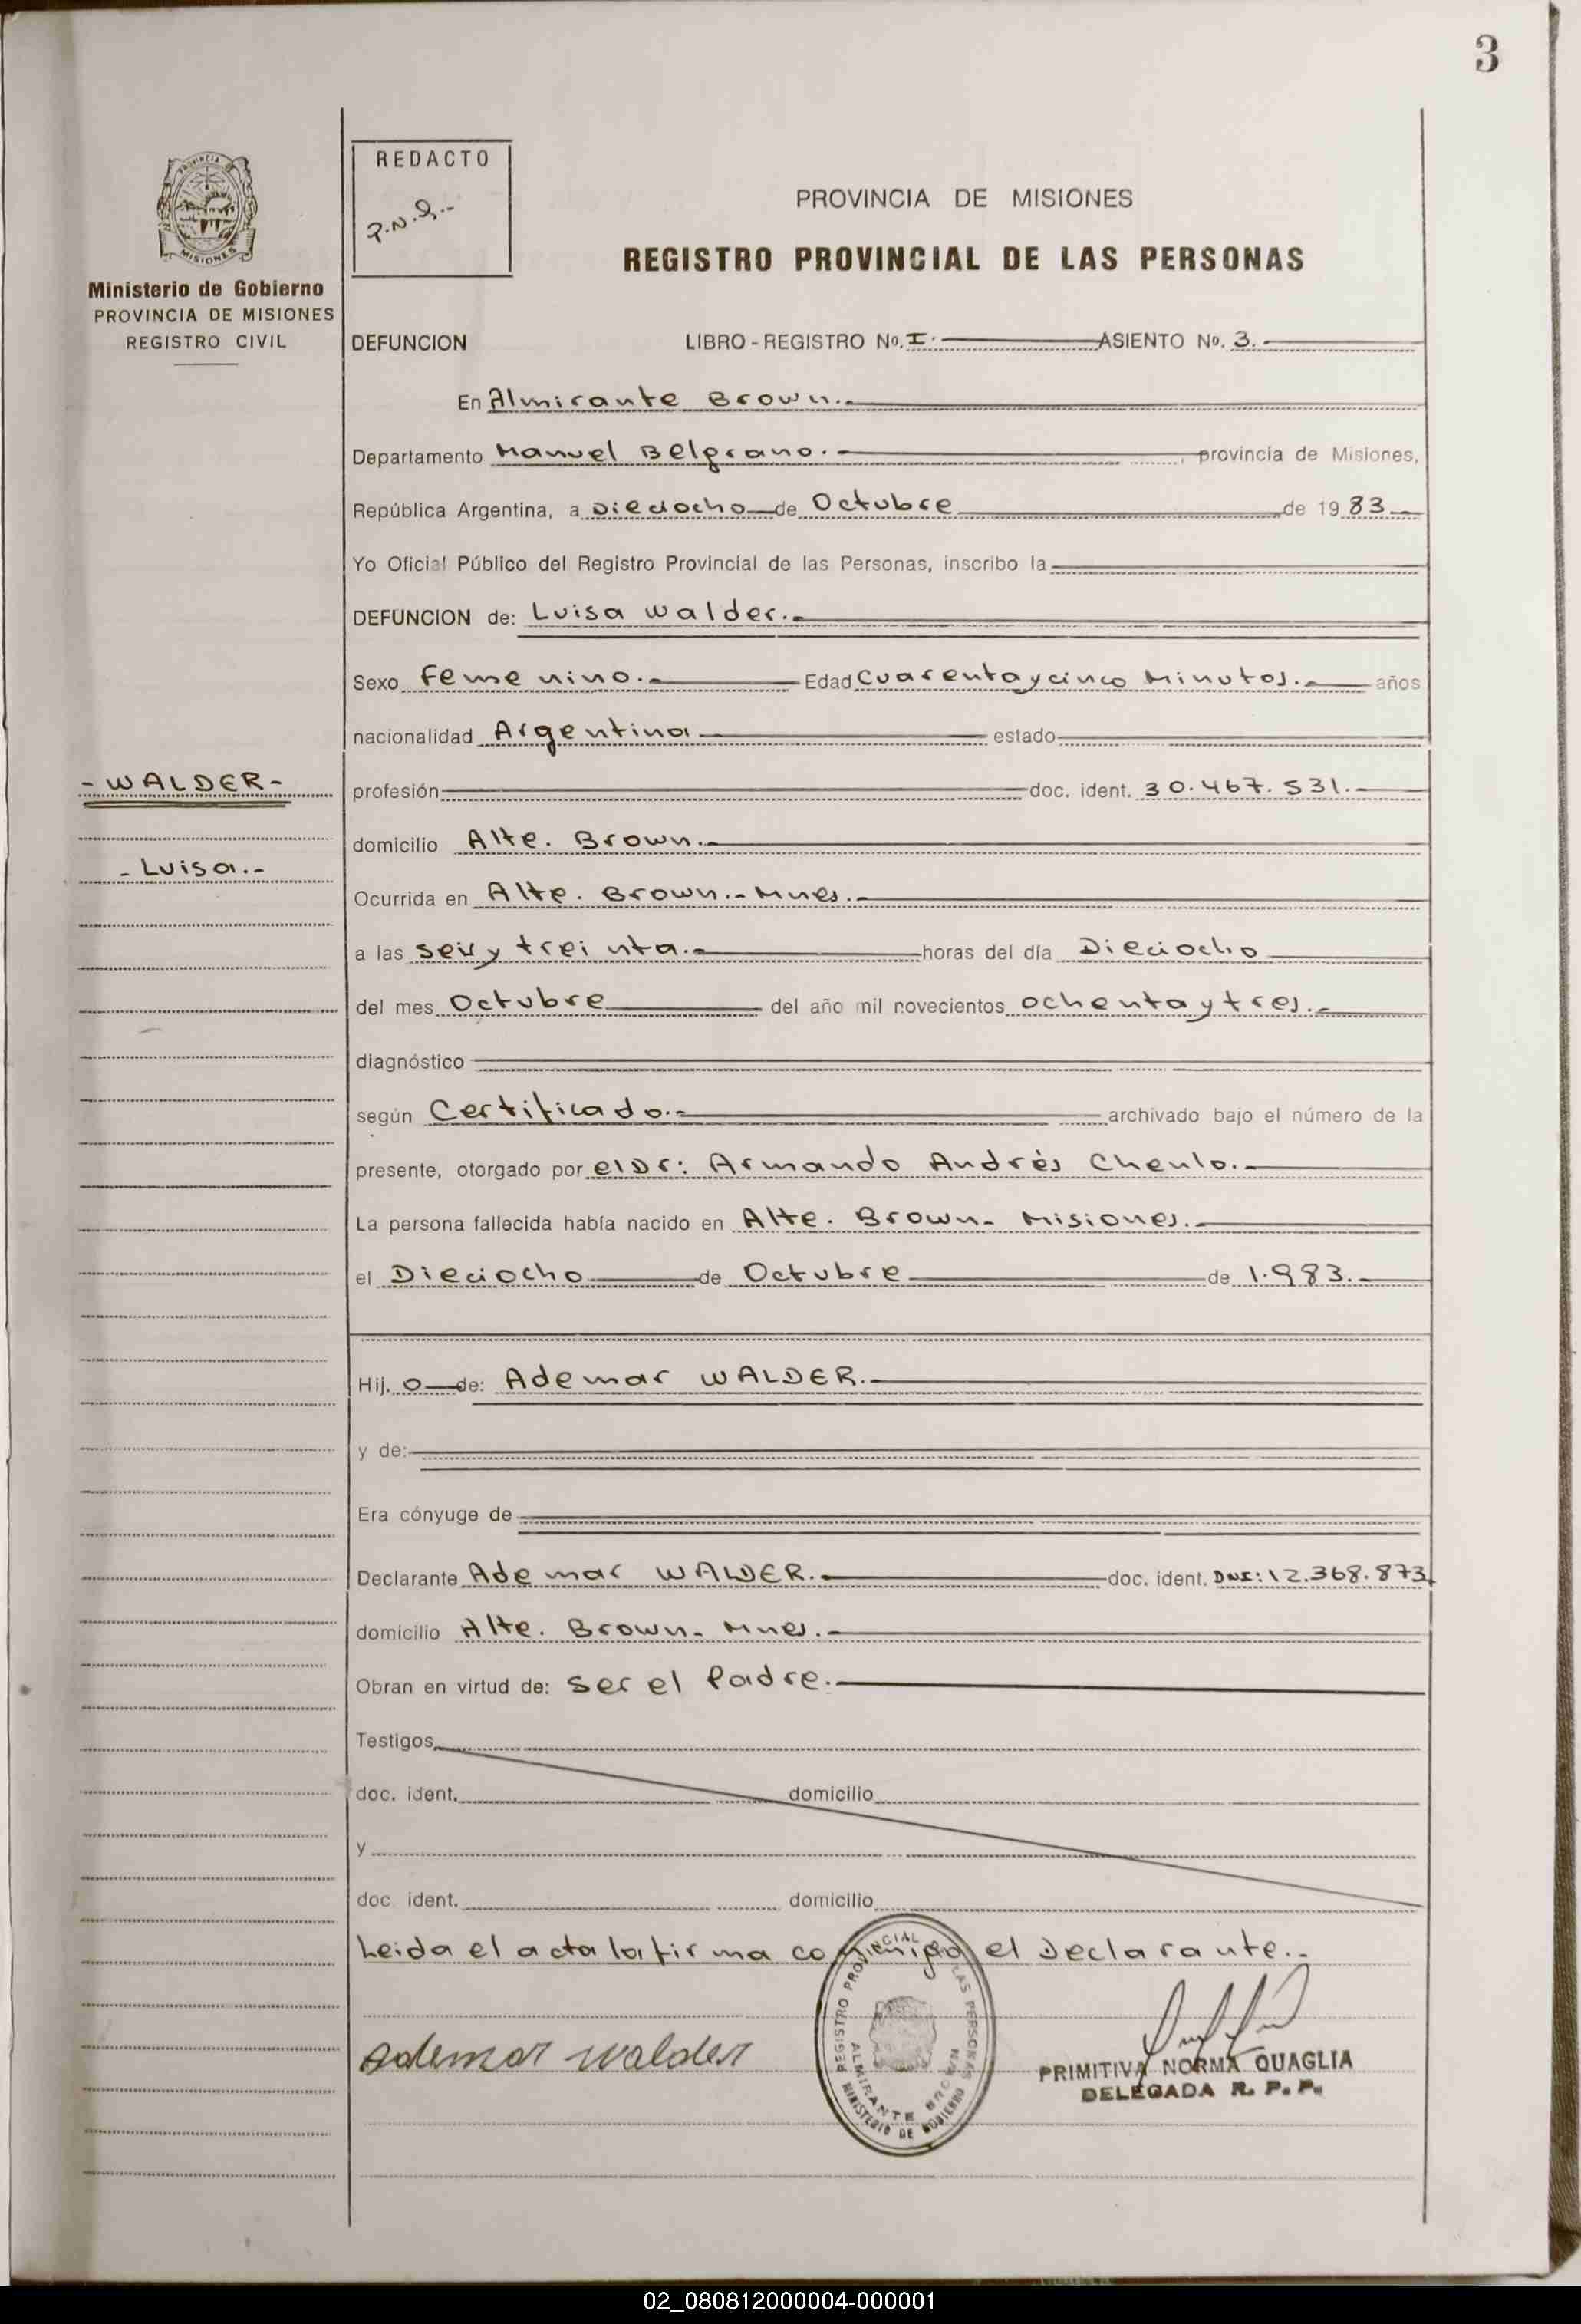 3
PROVINCIA
MISIONES
Ministerio de Gobierno
PROVINCIA DE MISIONES
REGISTRO CIVIL
REDACTO
PROVINCIA DE MISIONES
REGISTRO PROVINCIAL DE LAS PERSONAS
DEFUNCION LIBRO - REGISTRO No. I. ASIENTO No. 3.
En Almirante Brown.
Departamento Manuel Belgrano. , provincia de Misiones,
República Argentina, a Dieciocho de Octubre de 19 83
Yo Oficial Público del Registro Provincial de las Personas, inscribo la
DEFUNCION de: Luisa Walder.
Sexo Femenino. Edad Cuarenta y cinco Minutos. años
nacionalidad Argentina estado
- WALDER -
profesión doc. ident. 30.467.531.
domicilio Alte. Brown.
- Luisa.-
Ocurrida en Alte. Brown.- Mnes.
a las seis y treinta. horas del día Dieciocho
del mes Octubre del año mil novecientos ochenta y tres.
diagnóstico
según Certificado. archivado bajo el número de la
presente, otorgado por el Dr: Armando Andrés Chenlo.
La persona fallecida había nacido en Alte. Brown- Misiones.
el Dieciocho de Octubre de 1.983.
Hij. o de: Ademar WALDER.
y de:
Era cónyuge de
Declarante Ademar WALDER. doc. ident. DNI: 12.368.873
domicilio Alte. Brown- Mnes.
Obran en virtud de: ser el Padre.
Testigos
doc. ident. domicilio
y
doc. ident. domicilio
Leida el acta la firma conmigo el Declarante..
Ademar Walder
REGISTRO PROVINCIAL DE LAS PERSONAS
ALMIRANTE BROWN
MINISTERIO DE GOBIERNO
PRIMITIVA NORMA QUAGLIA
DELEGADA R. P. P.
02_080812000004-000001